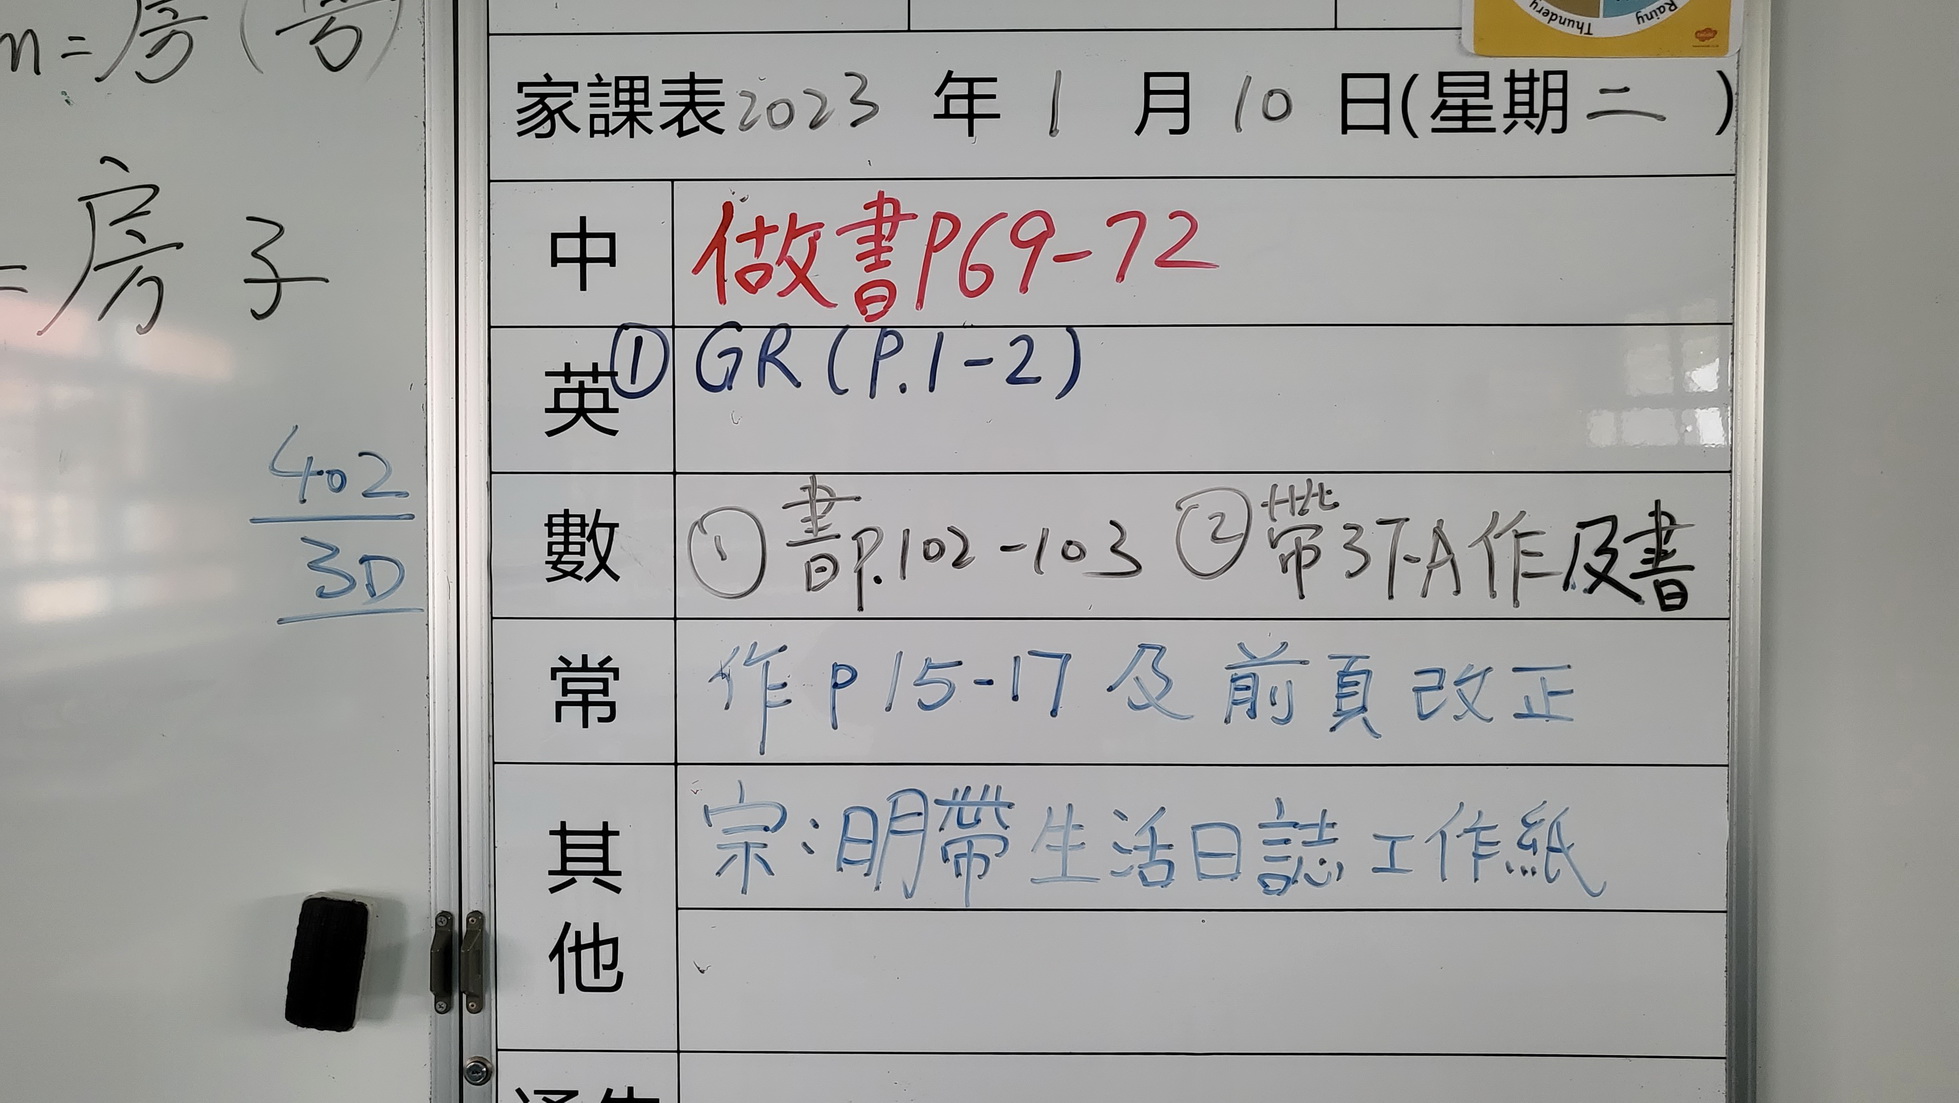 n=房(号)
=房子
402
3D
Thundery Rainy
家課表2023年1月10日(星期二)
中 做書P69-72
英 ① GR(P.1-2)
數 ①書P.102-103 ②帶3下A作及書
常 作P15-17及前頁改正
其他 宗:明帶生活日誌工作紙